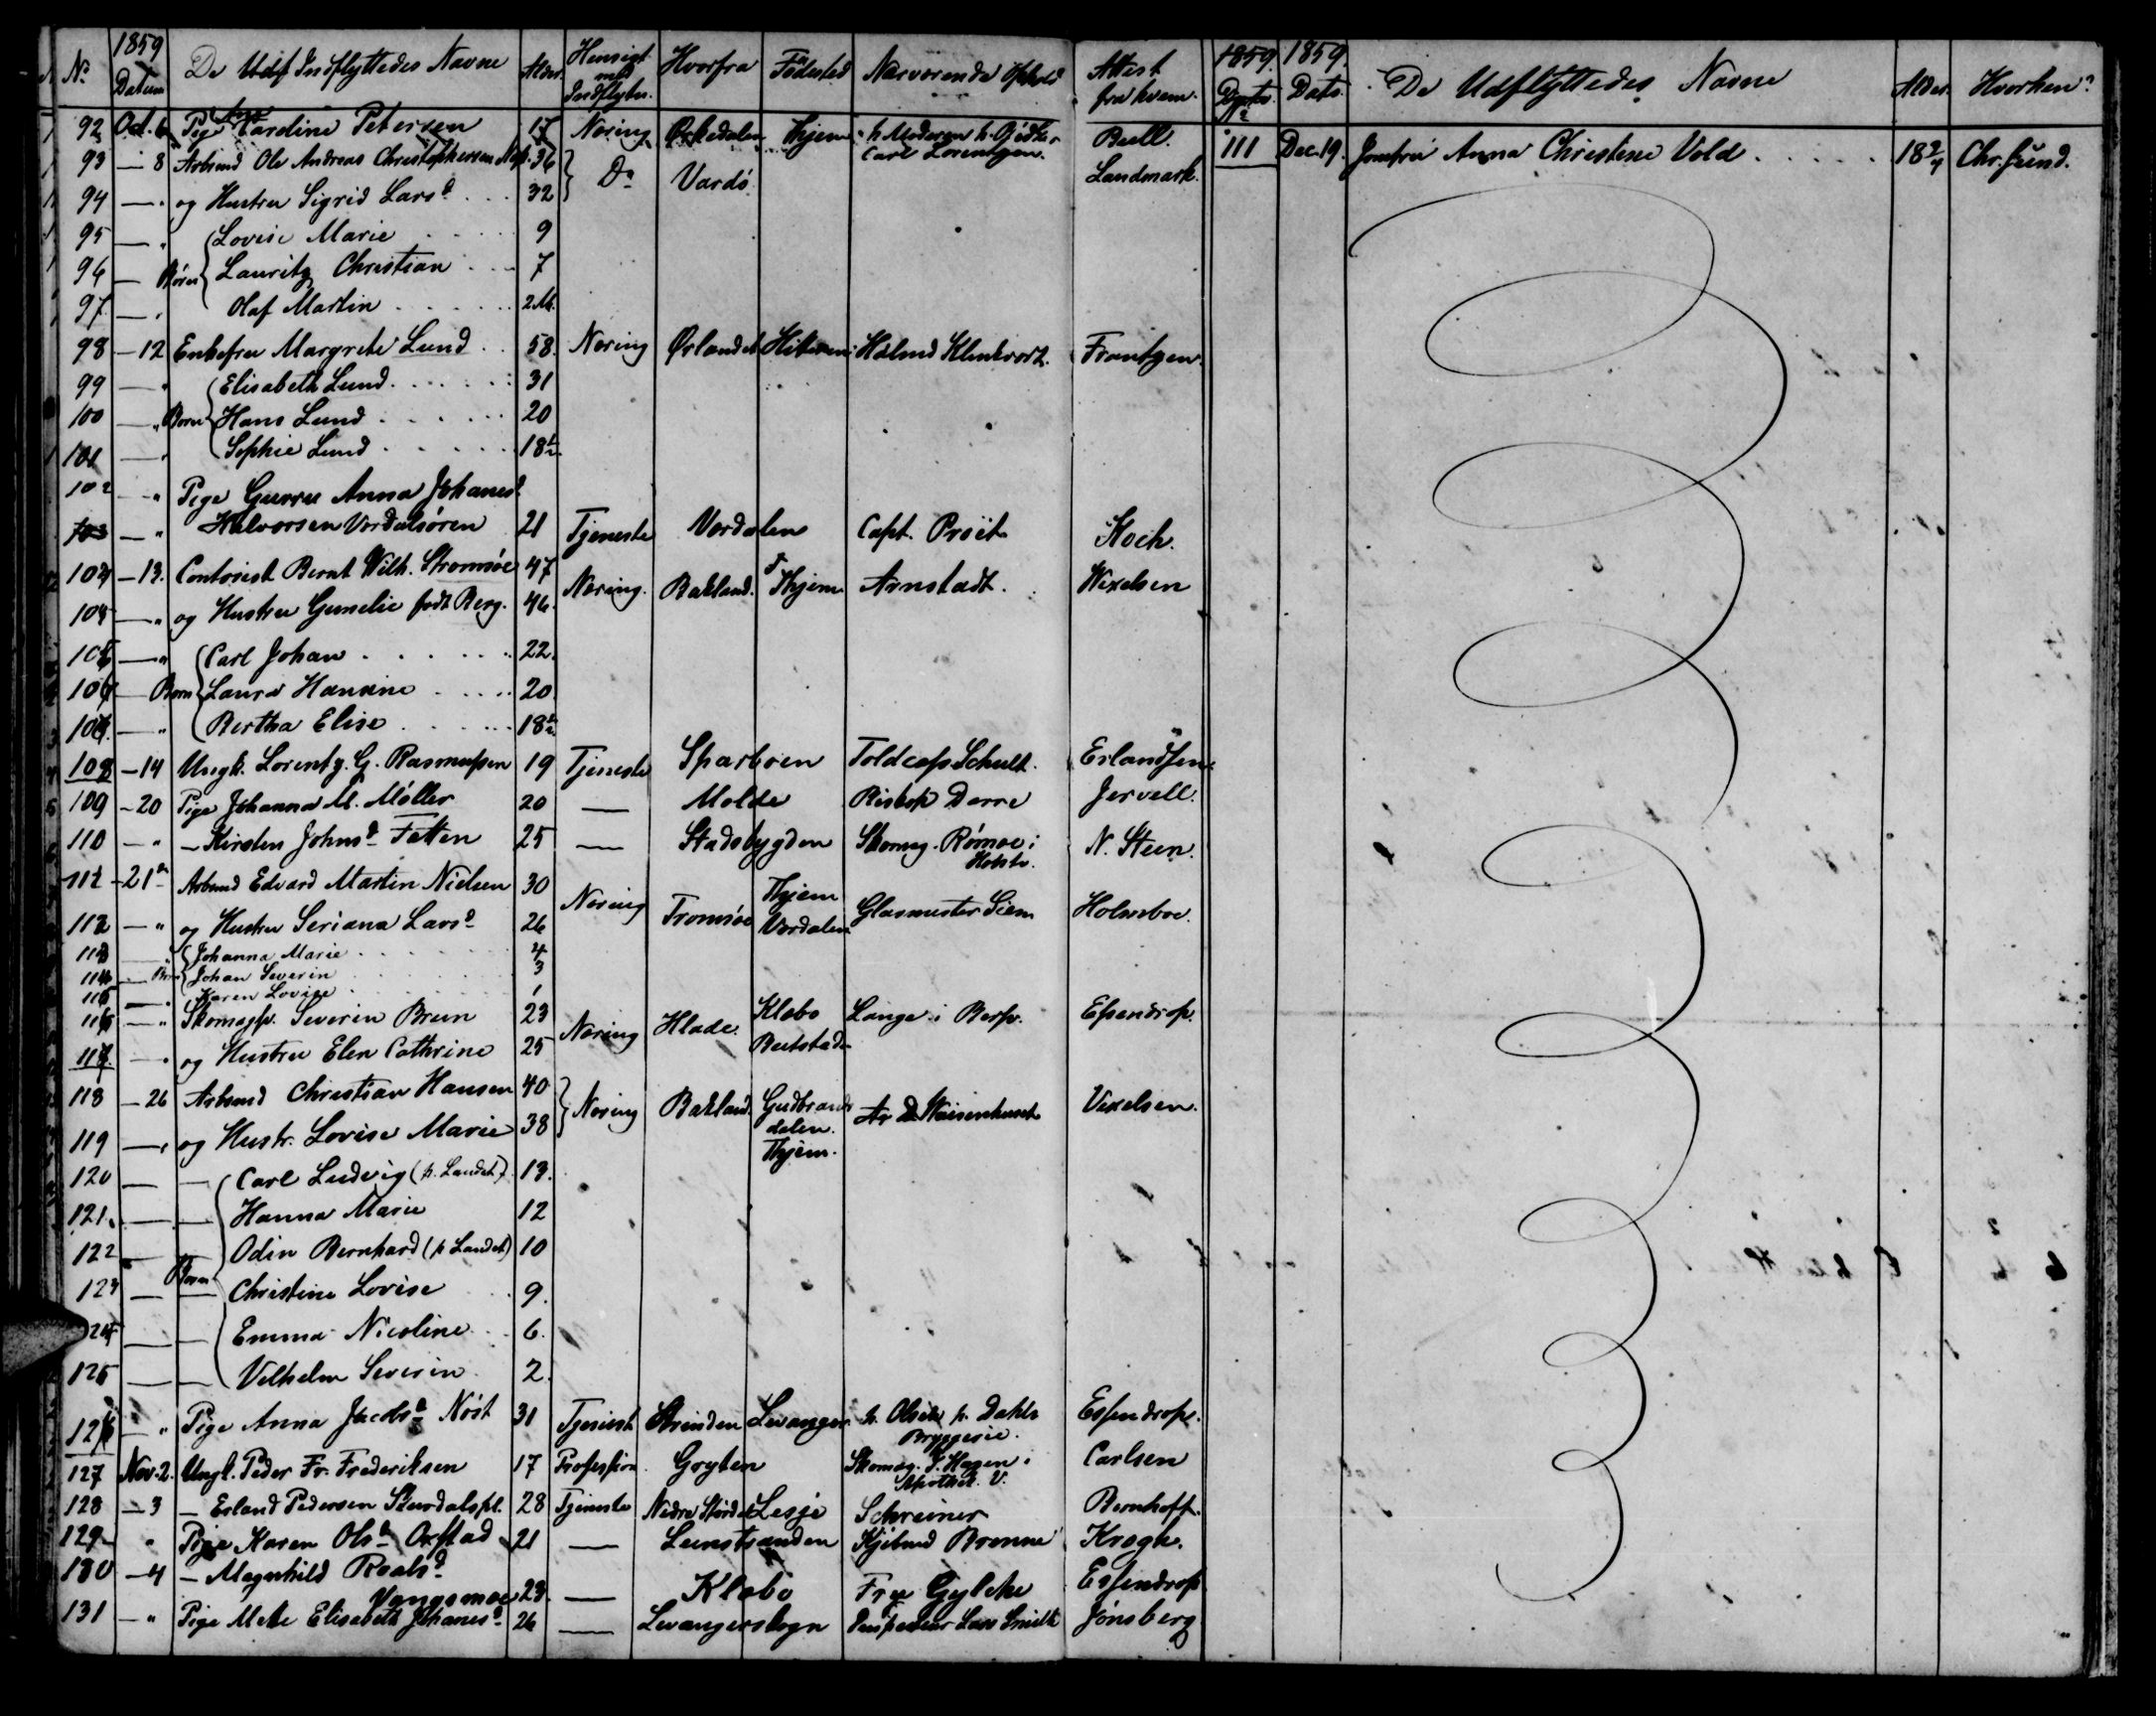 1859 1859. 1859.
No Datum De Indflyttedes Navne Alder. Hensigt med Indflytn. Hvorfra Fødested Nærværende Ophold Attest fra hvem. No Dato. De Udflyttedes Navne Alder. Hvorhen?
92 Oct. 6 Pige Caroline Petersen 17 Næring Ørkedalen Thjem Carl Lorentzen. Bull. 111 Dec. 19. Jomfru Anna Christense Vold 18 2/4 Chr.sund.
93 — 8 Arbmd Ole Andreas Christophersen 36 Do Vardö Landmark.
94 — " og Hustru Sigrid Larsd 32
95 — " Lovise Marie 9
96 — Børn Lauritz Christian 7
97 — " Olaf Martin 2 M.
98 — 12 Enkefru Margrete Lund 58. Næring Ørlandet Hitteren Frantzen.
99 — " Elisabeth Lund 31
100 — " Børn Hans Lund 20
101 — " Sophie Lund 18
102 — " Pige Anna Johansd
103 — " Halvorsen Værdalsøren 21 Tjeneste Værdalen Capt. Koch.
103 — 13. Contorist Bernt Wilh. Strømsøe 47 Næring. Bakland. Thjem Arnstadt. Wexelsen
104 — " og Hustru Gunelie født Berg. 46.
105 — " Carl Johan 22.
106 — Børn Laura Hansine 20
107 — " Bertha Elise 18
108 — 14 Ungk. Lorentz G. Rasmussen 19 Tjeneste Sparboen Toldcass Schult. Erlandsen.
109 — 20 Pige Johanna M. Møller 20 — Molde Biskop Darre Jervell.
110 — " — Kirsten Johnsd Fatten 25 — Stadsbygden Skomag. Rømoe i N. Steen.
111 — 21 Arbmd Edvard Martin Nielsen 30 Næring Tromsøe Thjem Glasmester Siem Holmboe.
112 — " og Hustru Seriana Larsd 26 Værdalen
113 — " Johanna Marie 4
114 — Børn Johan Severin 3
115 — " Karen Lovise 1
116 — " Skomagsv. Severin Bruun 23 Næring Hlade. Klæbo Lange i Essendrop.
117. — " og Hustru Elen Cathrine 25 Beitstad
118 — 26 Arbmd Christian Hansen 40 Næring Bakland. Gudbrandsdalen. Waisenhuset Vexelsen.
119 — " og Hustr. Lovise Marie 38 Thjem.
120 — — Carl Ludvig (p. Landet) 13.
121. — — Hanna Marie 12
122 — — Odin Bernhard (p. Landet) 10
123 — Børn Christine Lovise 9.
124 — — Emma Nicoline 6.
125 — — Vilhelm Severin 2.
126 — " Pige Anna Jacobsd Nøst 31 Tjeneste Strinden Levanger h. Olsen p. Dahls Bryggerie. Essendrop.
127 Nov. 2. Ungk. Peder Fr. Frederiksen 17 Profession Gryten Skomag. P. Hagen i Apothek. V. Carlsen
128 — 3 — Erland Pedersen Størdalspl. 28 Tjeneste Nedre Størdal Lesje Schreiner Bernhoft.
129 — " Pige Karen Olsd Aastad 21 — Leinstranden Kjøbmd Brenne Krogh.
130 — 4 — Magnhild Roalsd
Vangsmoe 23. — Klæbo Fru Gylche Essendrop
131 — " Pige Mette Elisabeth Johanesd 26 — Levangerskogn Inspecteur Lars Smith Jønsberg